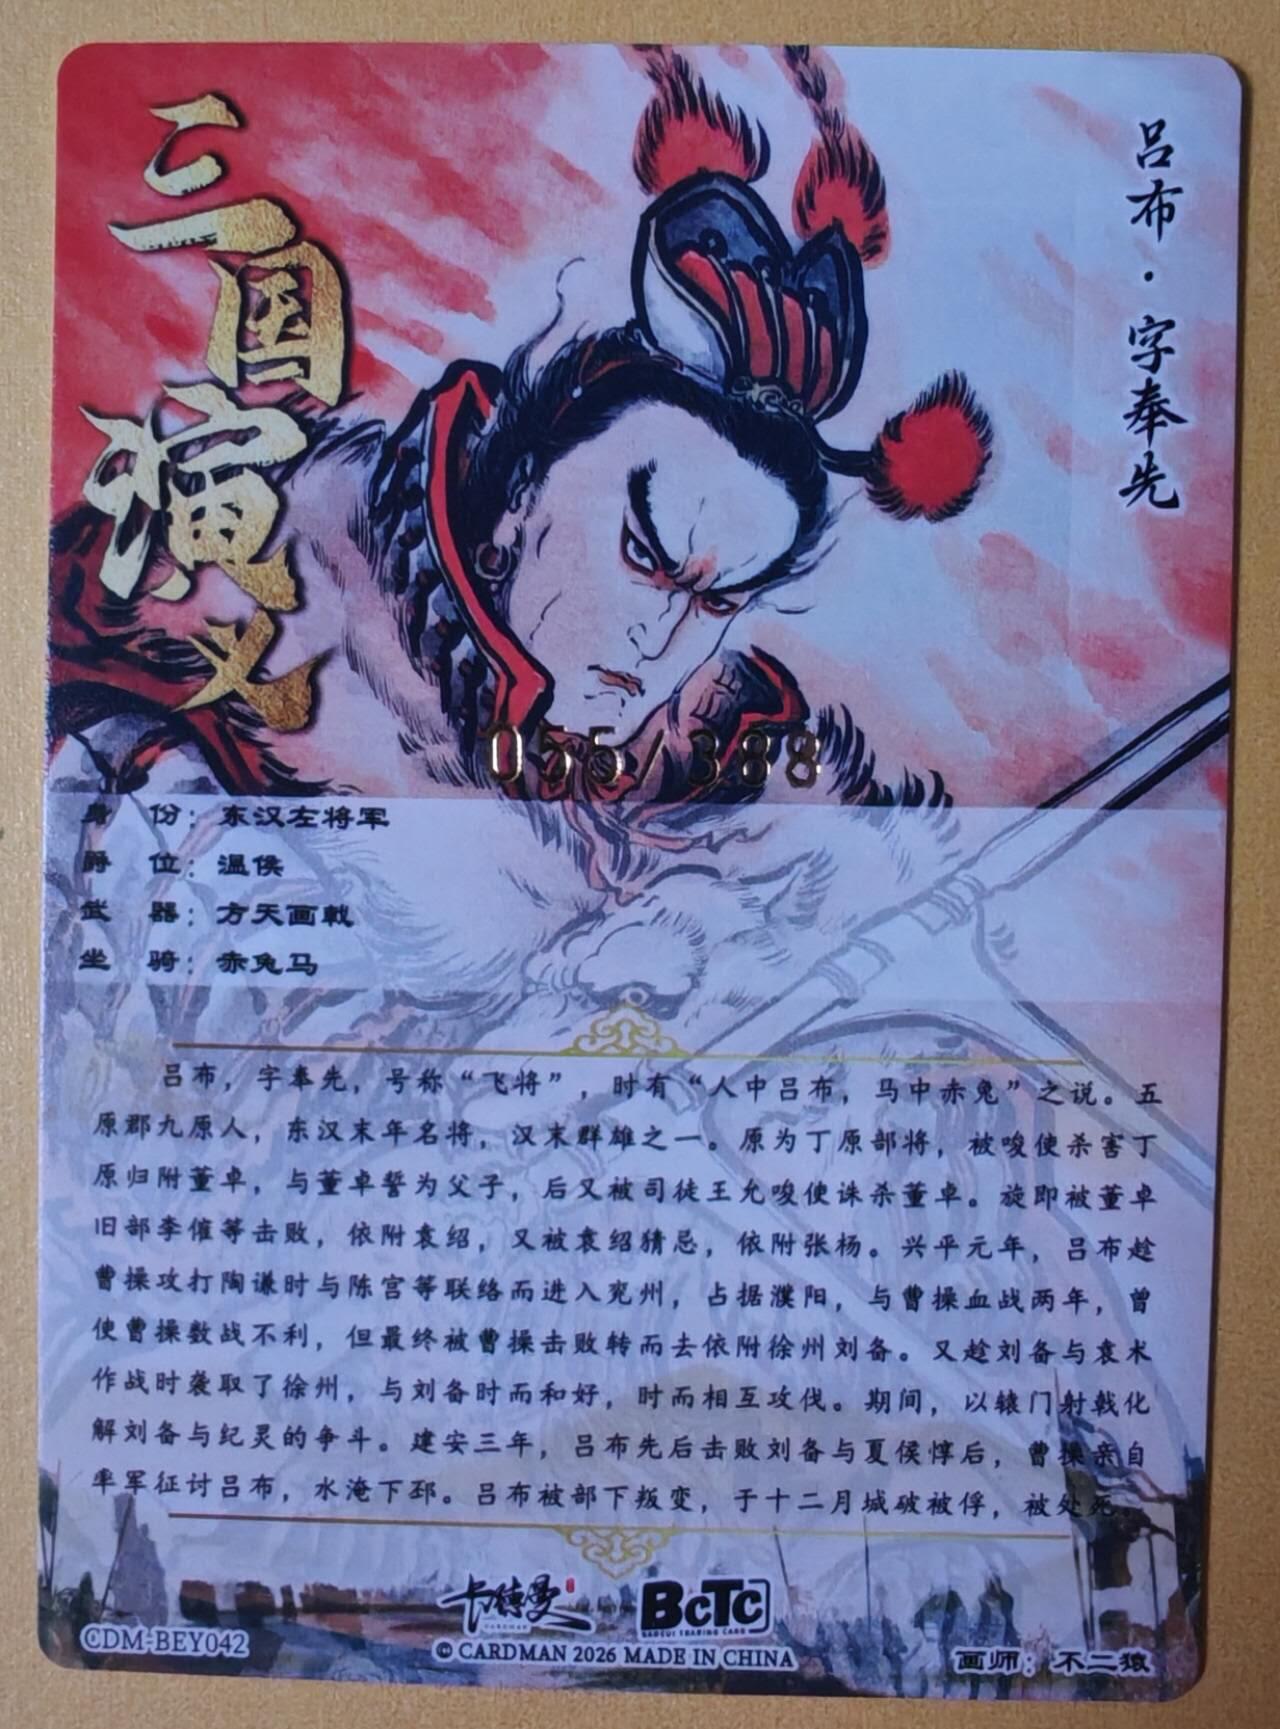 三国演义
吕布·字奉先
055/388
身 份：东汉左将军
爵 位：温侯
武 器：方天画戟
坐 骑：赤兔马
吕布，字奉先，号称“飞将”，时有“人中吕布，马中赤兔”之说。五
原郡九原人，东汉末年名将，汉末群雄之一。原为丁原部将，被唆使杀害丁
原归附董卓，与董卓誓为父子，后又被司徒王允唆使诛杀董卓。旋即被董卓
旧部李傕等击败，依附袁绍，又被袁绍猜忌，依附张杨。兴平元年，吕布趁
曹操攻打陶谦时与陈宫等联络而进入兖州，占据濮阳，与曹操血战两年，曾
使曹操数战不利，但最终被曹操击败转而去依附徐州刘备。又趁刘备与袁术
作战时袭取了徐州，与刘备时而和好，时而相互攻伐。期间，以辕门射戟化
解刘备与纪灵的争斗。建安三年，吕布先后击败刘备与夏侯惇后，曹操亲自
率军征讨吕布，水淹下邳。吕布被部下叛变，于十二月城破被俘，被处死。
卡德曼
CARDMAN
BCTC
BAOCUI TRADING CARD
CDM-BEY042
© CARDMAN 2026 MADE IN CHINA
画师：不二猿